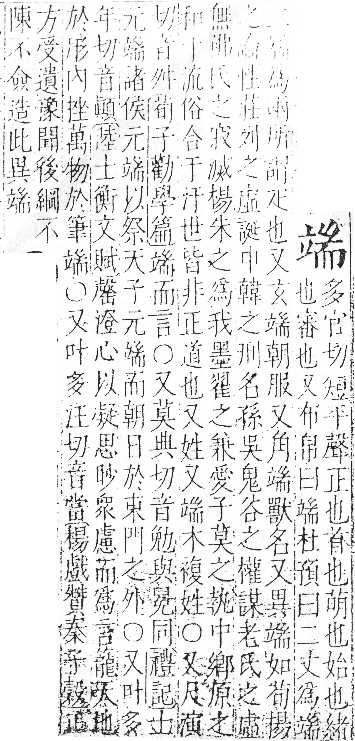 端
多官切短平聲正也首也萌也始也緒
也審也又布帛曰端杜預曰二丈爲端
二端爲兩所謂疋也又玄端朝服又角端獸名又異端如荀楊
之論性莊列之虛誕申韓之刑名孫吳鬼谷之權謀老氏之虛
無佛氏之寂滅楊朱之爲我墨翟之兼愛子莫之執中鄉原之
和同流俗合于汙世皆非正道也又姓又端木複姓〇又尺演
切音舛荀子勸學篇端而言〇又莫典切音勉與冕同禮記士
元端諸侯元端以祭天子元端而朝日於東門之外〇又叶多
年切音顛陸士衡文賦罄澄心以凝思眇衆慮而爲言籠天地
於形內挫萬物於筆端〇又叶多汪切音當楊戲贊秦子毅正
方受遺豫聞後綱不
陳不僉造此異端